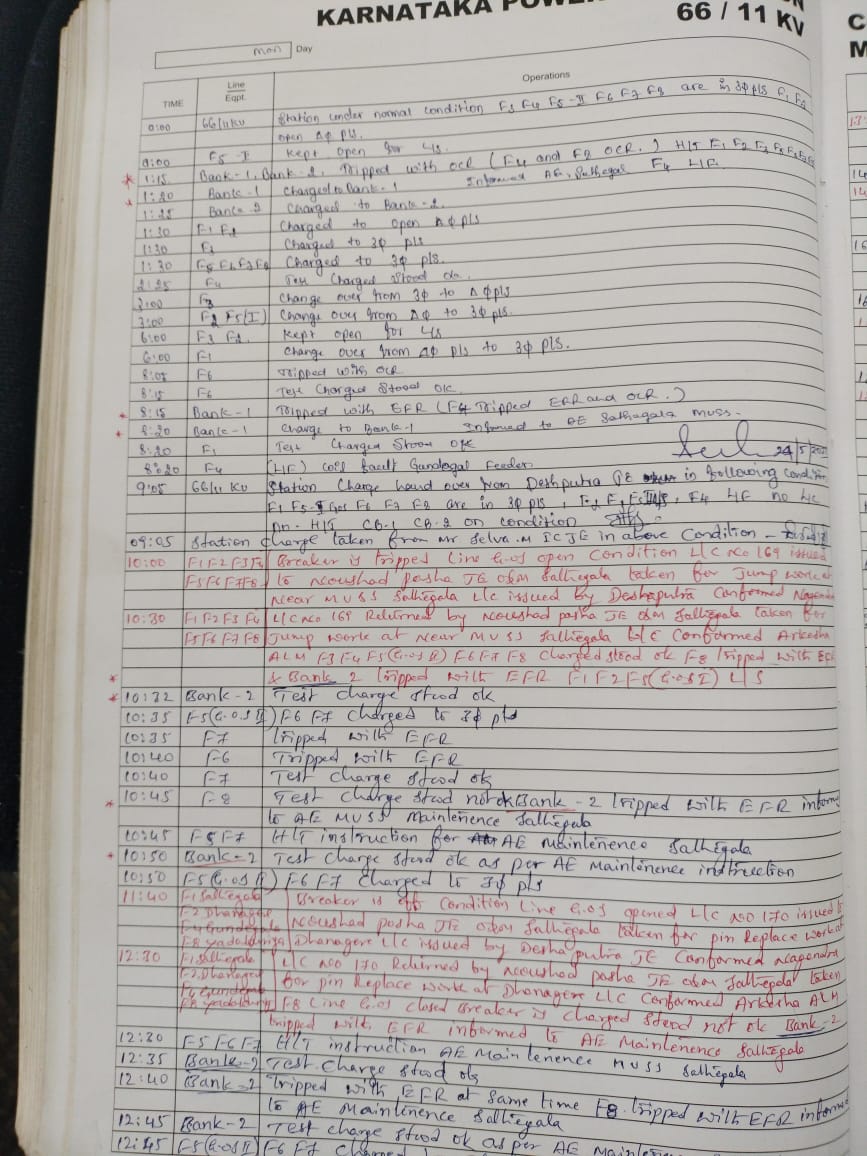 KARNATAKA POWER
66 / 11 KV
mon Day
TIME Line Eqpt. Operations
0:00 66/11KV Station under normal condition F3 F4 F5-II F6 F7 F8 are in 3φ pls F1, F2
open Δφ pls.
0:00 F5-I Kept open for L/s.
* 1:15 Bank-1, Bank-2, Tripped with OCR (F4 and F2 OCR.) H/T F1 F2 F3
* 1:20 Bank-1 Charged to Bank-1 Informed AE, F4 L/F.
1:25 Bank-2 Charged to Bank-2.
1:30 F1 F2 Charged to open Δφ pls
1:30 Charged to 3φ pls
1:30 Charged to 3φ pls.
2:25 F4 Test Charged Stood Ok.
3:00 F3 Change over from 3φ to Δφ pls
3:00 F2 F5(I) Change over from Δφ to 3φ pls.
6:00 F3 F2 Kept open for L/s
6:00 F1 Change over from Δφ pls to 3φ pls.
8:05 F6 Tripped with OCR
8:15 F6 Test Charged Stood Ok.
* 8:15 Bank-1 Tripped with EFR (F4 Tripped EFR and OCR.)
* 8:20 Bank-1 Charge to Bank-1 Informed to AE Sathagala MUSS.
8:20 F1 Test Charged Stood OK
8:20 F4 (L/F) Gundegal Feeder 24/5/
9:05 66/11 KV Station Charge hand over from Deshputra JE in following condition
F1 F5-II F6 F7 F8 are in 3φ pls, F4 L/F no L/c
on H/T CB-1 CB-2 on condition
09:05 Station charge taken from Mr Selva.M ICJE in above Condition –
10:00 F1 F2 F3 F4 Breaker is tripped Line G.os open Condition L/C No 169 issued
F5 F6 F7 F8 to Noushad pasha JE o&m Sathegala taken for Jump work at
Near MUSS Sathegala L/c issued by Deshaputra Conformed Nagendra
10:30 F1 F2 F3 F4 L/C No 169 Returned by Noushad pasha JE o&m Sathegala taken for
F5 F6 F7 F8 Jump work at Near MUSS Sathegala L/C Conformed Arkesha
ALM F3 F4 F5(G.os II) F6 F7 F8 Charged stood ok F8 tripped with EFR
* & Bank 2 tripped with EFR F1 F2 F5(G.os I) L/S
* 10:32 Bank-2 Test charge stood ok
10:35 F5(G.os II) F6 F7 Charged to 3φ pls
10:35 F7 tripped with EFR
10:40 F6 Tripped with EFR
10:40 F7 Test charge stood ok
* 10:45 F8 Test charge stood not ok Bank-2 tripped with EFR inform
to AE MUSS Maintenence Sathegala
10:45 F5 F7 H/T instruction for AE Maintenence Sathegala
* 10:50 Bank-2 Test charge stood ok as per AE Maintenence instruction
10:50 F5(G.os II) F6 F7 Charged to 3φ pls
11:40 F1 Sathegala Breaker is off Condition Line G.os opened L/c No 170 issued to
F2 Dhanagere Noushad pasha JE o&m Sathegala taken for pin Replace work at
F8 Yadakuriya Dhanagere L/c issued by Deshaputra JE Conformed Nagendra
12:30 F1 Sathegala L/c No 170 Returned by Noushad pasha JE o&m Sathegala taken
F2 Dhanagere for pin Replace work at Dhanagere L/C Conformed Arkesha ALM
F8 Yadakuriya F8 Line G.os closed Breaker is charged Stood not ok Bank-2
tripped with EFR informed to AE Maintenence Sathegala
12:30 F5 F6 F7 H/T instruction AE Maintenence MUSS Sathegala
12:35 Bank-2 Test charge stood ok
12:40 Bank-2 Tripped with EFR at same time F8 tripped with EFR inform
to AE Maintenence Sathegala
12:45 Bank-2 Test charge stood ok as per AE
12:45 F5(G.os II) F6 F7